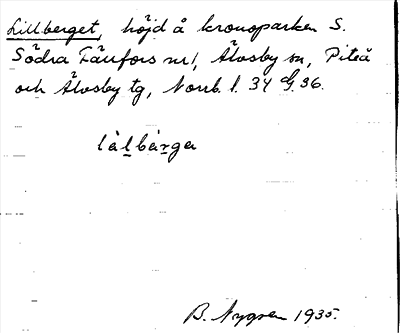 Lillberget, höjd å kronoparken S.
Södra Tänfors nr 1, Älvsby sn, Piteå
och Älvsby tg, Norrb. l. 34 G 36.
låḻbàṟgə
B. Nygren 1935.